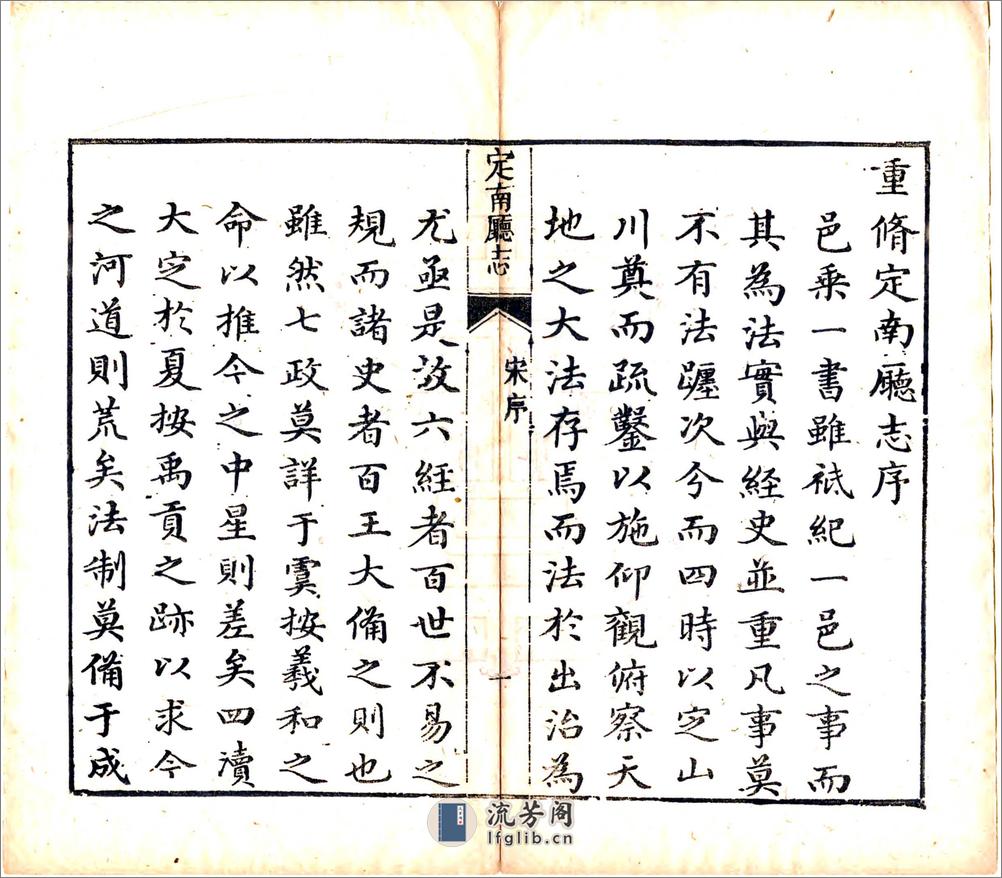 重脩定南廳志序
邑乗一書雖祗紀一邑之事而
其為法實與経史並重凡事莫
不有法躔次分而四時以㝎山
川奠而疏鑿以施仰觀俯察天
地之大法存焉而法於出治為
定南廳志
宋序
一
尤亟是故六経者百世不易之
規而諸史者百王大備之則也
雖然七政莫詳于虞按羲和之
命以推今之中星則差矣四瀆
大㝎於夏按禹貢之跡以求今
之河道則荒矣法制莫備于成
流芳阁
lfglib.cn